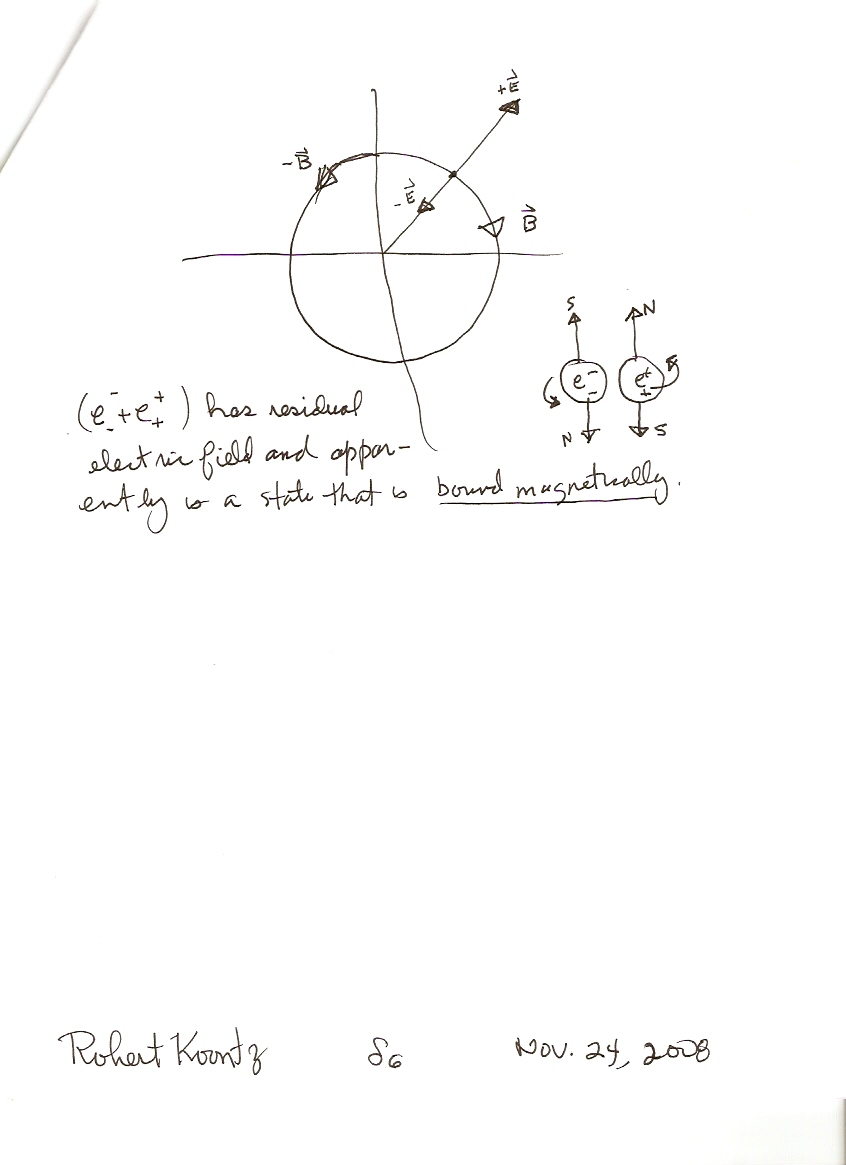 +E
-B
-E
B
S
N
e-
-
e+
+
N
S
(e-- + e++) has residual
electric field and appar-
ently is a state that is bound magnetically.
Robert Koontz S6 Nov. 24, 2008